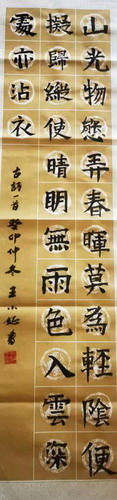 山光物態弄春暉莫為輕陰便
擬歸縱使晴明無雨色入雲深
處亦沾衣
古詩一首癸卯仲冬